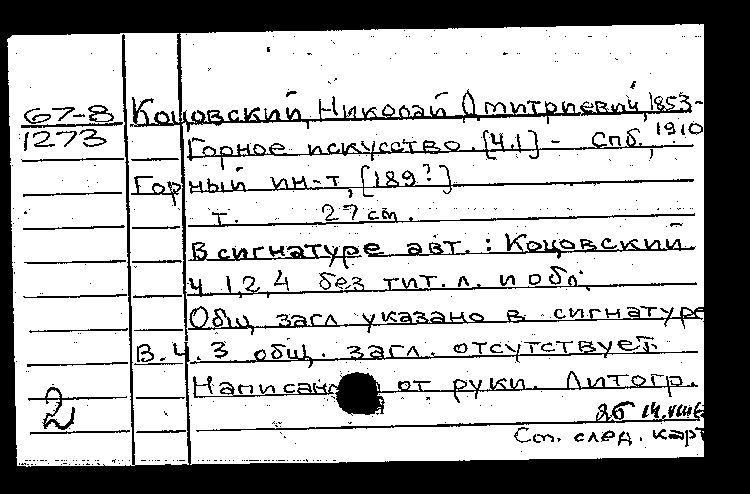 67-8 Коцовский, Николай Дмитриевич, 1853-
1273 Горное искусство. [Ч.1] - Спб, 1910
Горный ин-т, [189?]
т. 27 cm.
В сигнатуре авт. : Коцовский
ч 1,2,4 без тит. л. и обл.
Общ. загл. указано в сигнатуре
В. ч. 3 общ. загл. отсутствует.
от руки. Литогр.
2
См. след. карт